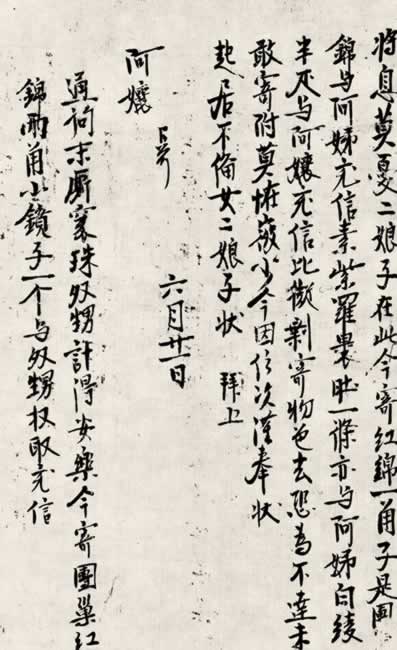 将息莫憂二娘子在此今寄紅錦一角子是團
錦与阿姊充信素紫羅裹肚一條亦与阿姊白綾
半疋与阿孃充信比擬剩寄物色去恐為不達未
敢寄附莫怪微少今因信次謹奉状
起居不備女二娘子状 拜上
六月廿一日
阿孃
通詢末厮穰珠外甥計得安樂今寄團巢紅
錦兩角小鏡子一个与外甥收取充信